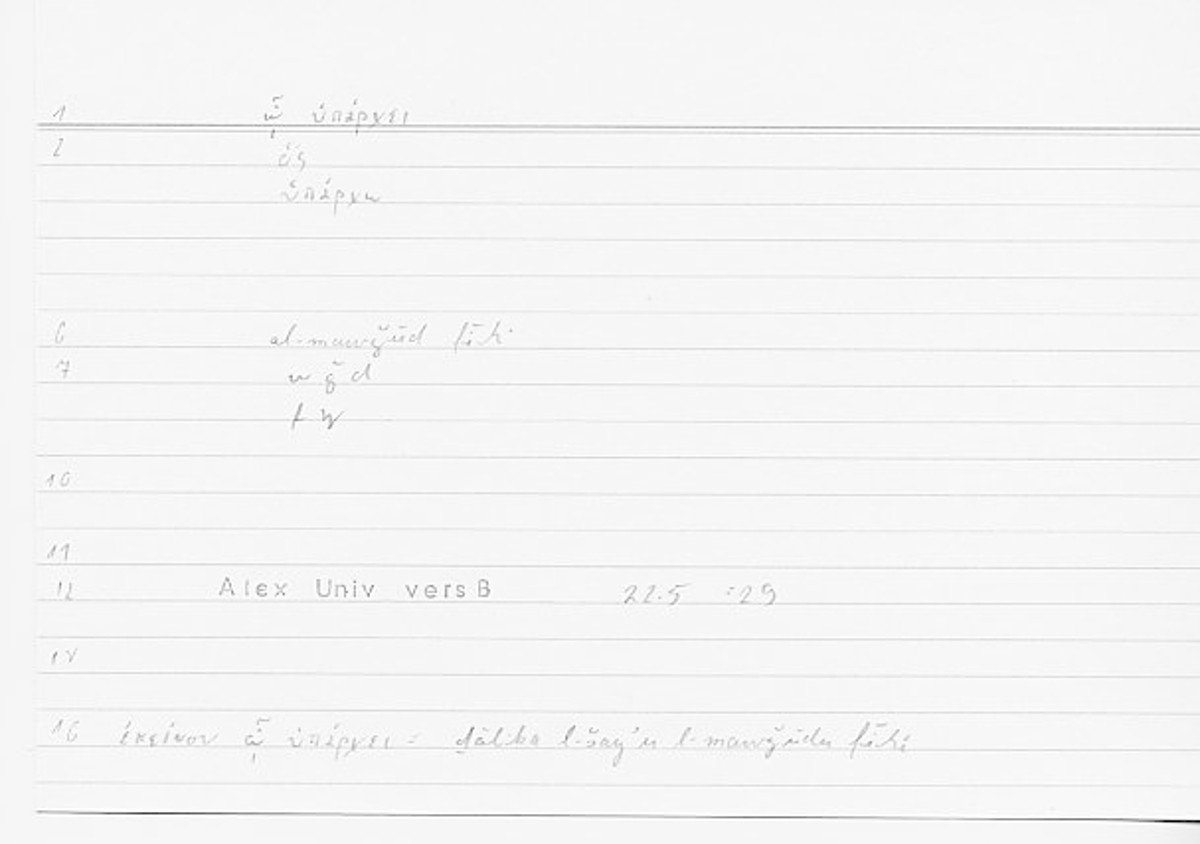 1 ᾧ ὑπάρχει
2 ὅς
ὑπάρχω
6 al-mawǧūd fīhi
7 w ǧ d
f y
10
11
12 Alex Univ vers B 22.5 :29
14
16 ἐκείνου ᾧ ὑπάρχει = ḏālika l-šayʾu l-mawǧūdu fīhi